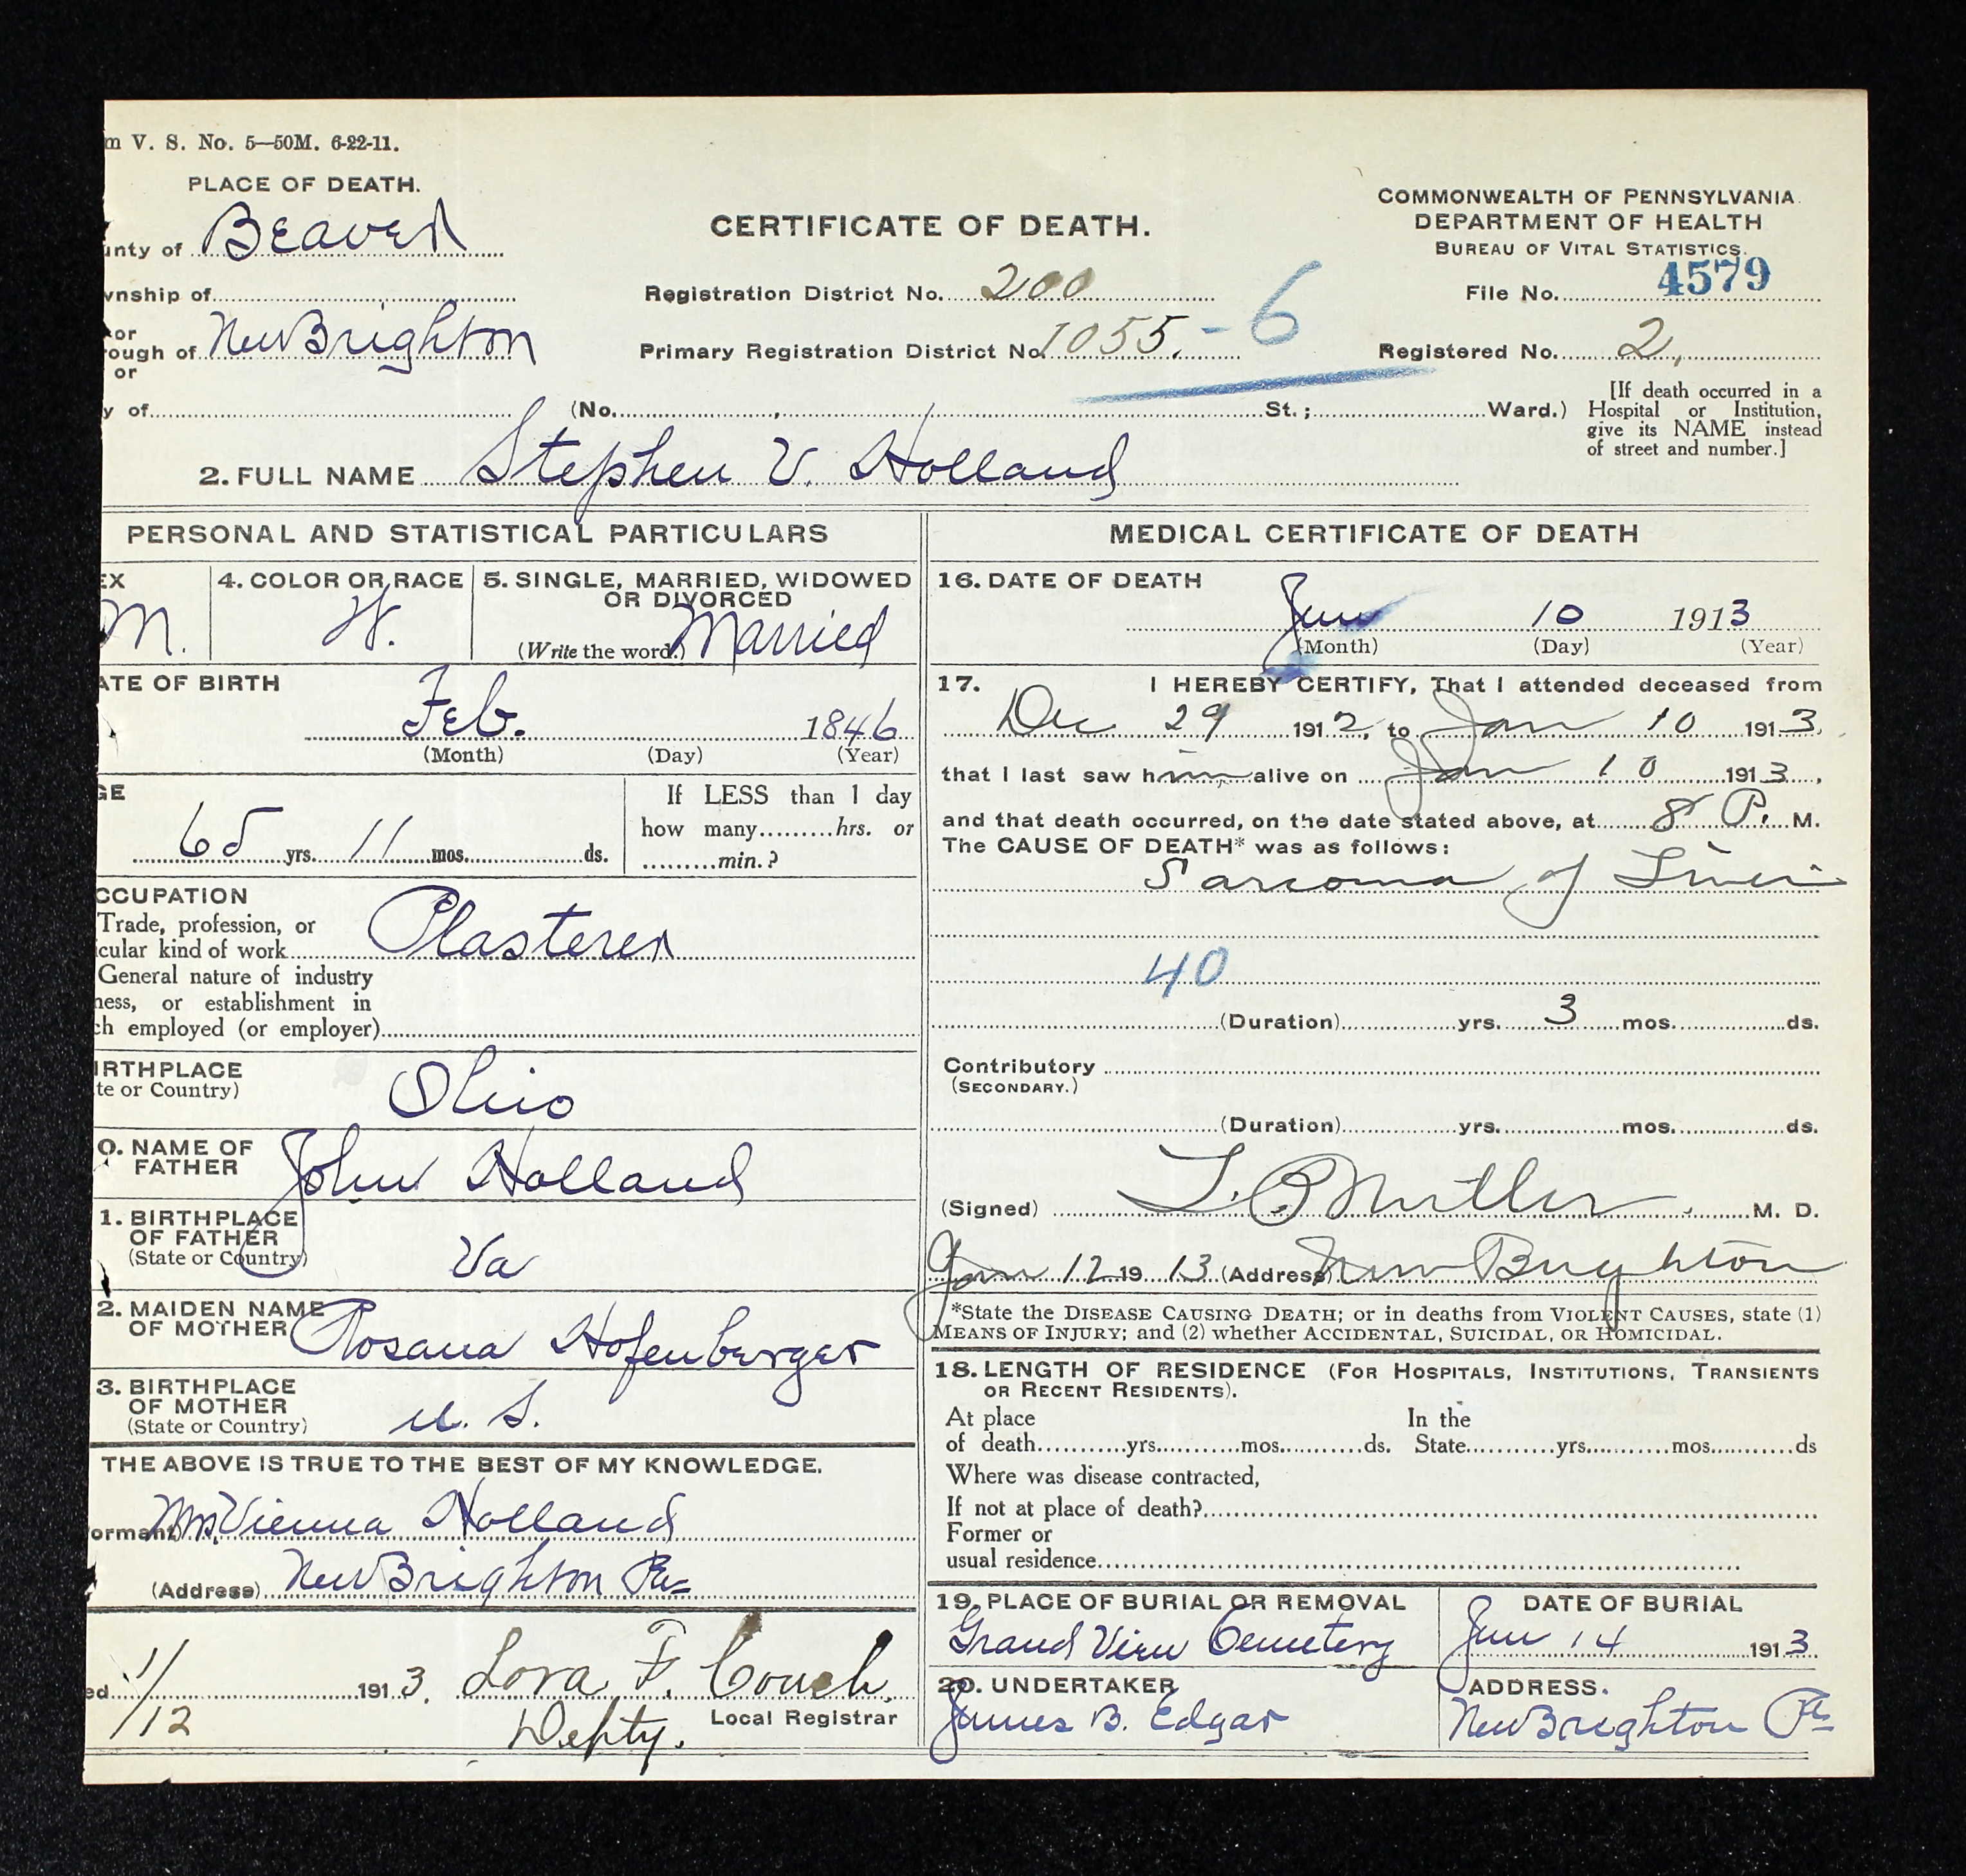 m V. S. No. 5—50M. 6-22-11.
PLACE OF DEATH.
unty of Beaver
wnship of
or
rough of New Brighton
or
y of
CERTIFICATE OF DEATH.
Registration District No. 200
Primary Registration District No. 1055. - 6
(No. , St.; Ward.)
COMMONWEALTH OF PENNSYLVANIA
DEPARTMENT OF HEALTH
BUREAU OF VITAL STATISTICS.
File No. 4579
Registered No. 2,
[If death occurred in a
Hospital or Institution,
give its NAME instead
of street and number.]
2. FULL NAME Stephen V. Holland
PERSONAL AND STATISTICAL PARTICULARS
EX
M.
4. COLOR OR RACE
W.
5. SINGLE, MARRIED, WIDOWED
OR DIVORCED
(Write the word.) Married
ATE OF BIRTH
Feb. 1846
(Month) (Day) (Year)
GE
65 yrs. 11 mos. ds.
If LESS than 1 day
how many hrs. or
min.?
CCUPATION
Trade, profession, or
cular kind of work Plasterer
General nature of industry
ness, or establishment in
ch employed (or employer)
IRTHPLACE
te or Country) Ohio
0. NAME OF
FATHER John Holland
1. BIRTHPLACE
OF FATHER
(State or Country) Va
2. MAIDEN NAME
OF MOTHER Rosana Hofenberger
3. BIRTHPLACE
OF MOTHER
(State or Country) U. S.
THE ABOVE IS TRUE TO THE BEST OF MY KNOWLEDGE.
ormant) Mrs Vienna Holland
(Address) New Brighton Pa
ed 1/12 1913. Lora F. Couch
Depty. Local Registrar
MEDICAL CERTIFICATE OF DEATH
16. DATE OF DEATH
Jan 10 1913
(Month) (Day) (Year)
17. I HEREBY CERTIFY, That I attended deceased from
Dec 29 1912, to Jan 10 1913,
that I last saw him alive on Jan 10 1913,
and that death occurred, on the date stated above, at 8 P. M.
The CAUSE OF DEATH* was as follows:
Sarcoma of Liver
40
(Duration) yrs. 3 mos. ds.
Contributory
(SECONDARY.)
(Duration) yrs. mos. ds.
(Signed) M. D.
Jan 12 1913 (Address) New Brighton
*State the DISEASE CAUSING DEATH; or in deaths from VIOLENT CAUSES, state (1)
MEANS OF INJURY; and (2) whether ACCIDENTAL, SUICIDAL, OR HOMICIDAL.
18. LENGTH OF RESIDENCE (FOR HOSPITALS, INSTITUTIONS, TRANSIENTS
OR RECENT RESIDENTS).
At place In the
of death yrs. mos. ds. State yrs. mos. ds
Where was disease contracted,
If not at place of death?
Former or
usual residence
19. PLACE OF BURIAL OR REMOVAL
Grand View Cemetery
DATE OF BURIAL
Jan 14 1913
20. UNDERTAKER
James B. Edgar
ADDRESS.
New Brighton Pa